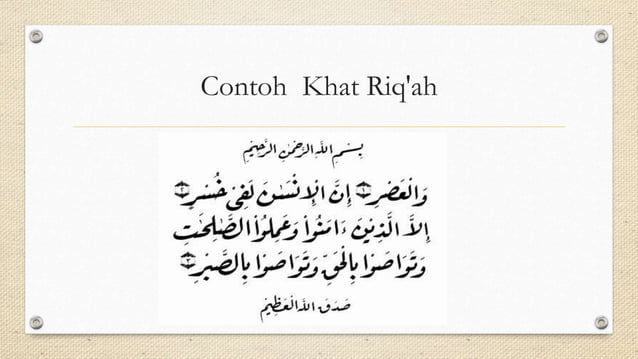 Contoh Khat Riq'ah
بِسْمِ اللَّهِ الرَّحْمٰنِ الرَّحِيْمِ
وَالْعَصْرِ ۝١ إِنَّ الْإِنْسٰنَ لَفِيْ خُسْرٍ ۝٢
إِلَّا الَّذِيْنَ ءَامَنُوْا وَعَمِلُوا الصّٰلِحٰتِ
وَتَوَاصَوْا بِالْحَقِّ وَتَوَاصَوْا بِالصَّبْرِ ۝٣
صَدَقَ اللهُ الْعَظِيْمُ